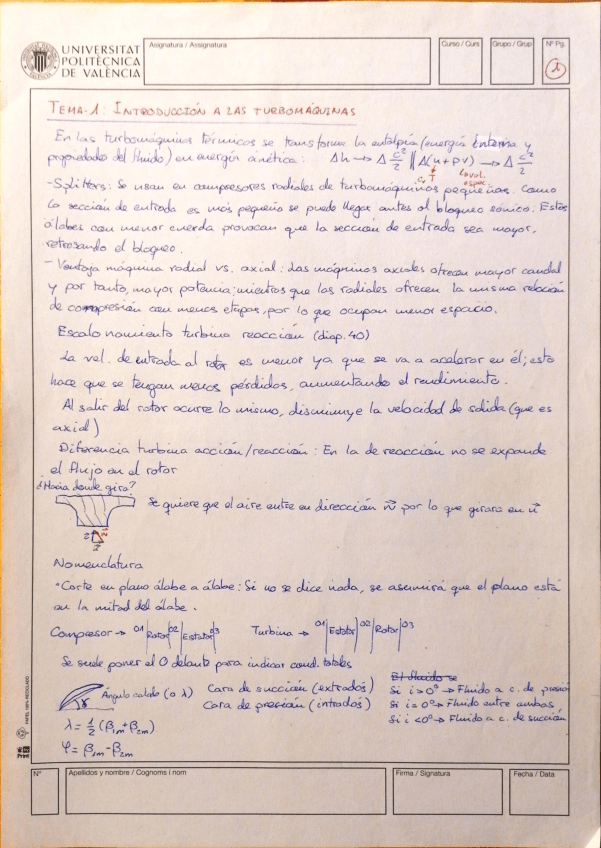 UNIVERSITAT
POLITÈCNICA
DE VALÈNCIA
Asignatura / Assignatura
Curso / Curs
Grupo / Grup
Nº Pg.
1
TEMA-1: INTRODUCCIÓN A LAS TURBOMÁQUINAS
En las turbomáquinas térmicas se transforma la entalpía (energía interna y
propiedades del fluido) en energía cinética: Δh → Δ c²/2 || Δ(u + pv) → Δ c²/2
cᵥT
vol. espec.
-Splitters: Se usan en compresores radiales de turbomáquinas pequeñas. Como
la sección de entrada es más pequeña se puede llegar antes al bloqueo sónico. Estos
álabes con menor cuerda provocan que la sección de entrada sea mayor,
retrasando el bloqueo.
- Ventaja máquina radial vs. axial: Las máquinas axiales ofrecen mayor caudal
y por tanto, mayor potencia; mientras que las radiales ofrecen la misma relación
de compresión con menos etapas, por lo que ocupan menor espacio.
Escalonamiento turbina reacción (diap. 40)
La vel. de entrada al rotor es menor ya que se va a acelerar en él; esto
hace que se tengan menos pérdidas, aumentando el rendimiento.
Al salir del rotor ocurre lo mismo, disminuye la velocidad de salida (que es
axial)
Diferencia turbina acción/reacción: En la de reacción no se expande
el flujo en el rotor
¿Hacia donde gira?
Se quiere que el aire entre en dirección w⃗ por lo que girara en u⃗
Nomenclatura
*Corte en plano álabe a álabe: Si no se dice nada, se asumirá que el plano está
en la mitad del álabe.
Compresor → 01 | Rotor | 02 | Estator | 03 Turbina → 01 | Estator | 02 | Rotor | 03
Se suele poner el 0 delante para indicar cond. totales
Ángulo calado (o λ)
λ = 1/2 (β₁ₘ + β₂ₘ)
φ = β₁ₘ - β₂ₘ
Cara de succión (extradós)
Cara de presión (intradós)
El fluido se
Si i > 0° → Fluido a c. de presión
Si i = 0° → Fluido entre ambas
Si i < 0° → Fluido a c. de succión
PAPEL 100% RECICLADO
Nº
Apellidos y nombre / Cognoms i nom
Firma / Signatura
Fecha / Data